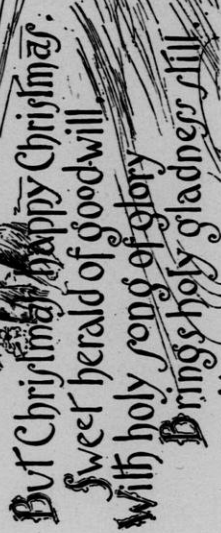 But Christmas, happy Christmas,
Sweet herald of good-will,
With holy song of glory
Brings holy gladness still.